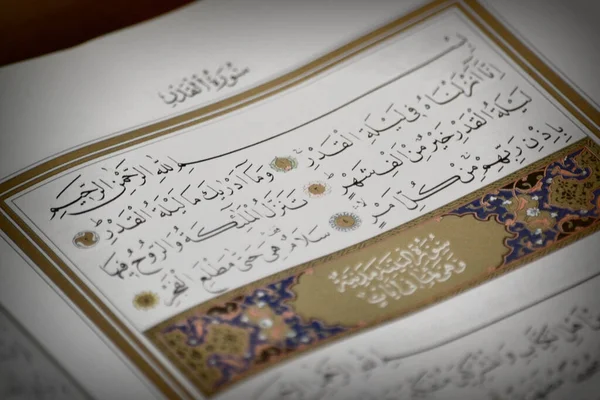 سُورَةُ الْقَدْرِ
بِسْمِ اللهِ الرَّحْمٰنِ الرَّحِيمِ
إِنَّا أَنْزَلْنَاهُ فِي لَيْلَةِ الْقَدْرِ وَمَا أَدْرٰيكَ مَا لَيْلَةُ الْقَدْرِ
لَيْلَةُ الْقَدْرِ خَيْرٌ مِنْ أَلْفِ شَهْرٍ تَنَزَّلُ الْمَلٰئِكَةُ وَالرُّوحُ فِيهَا
بِإِذْنِ رَبِّهِمْ مِنْ كُلِّ أَمْرٍ سَلَامٌ هِيَ حَتّٰى مَطْلَعِ الْفَجْرِ
سُورَةُ الْبَيِّنَةِ مَدَنِيَّةٌ
وَهِيَ ثَمَانِي آيَاتٍ
بِسْمِ اللهِ الرَّحْمٰنِ الرَّحِيمِ